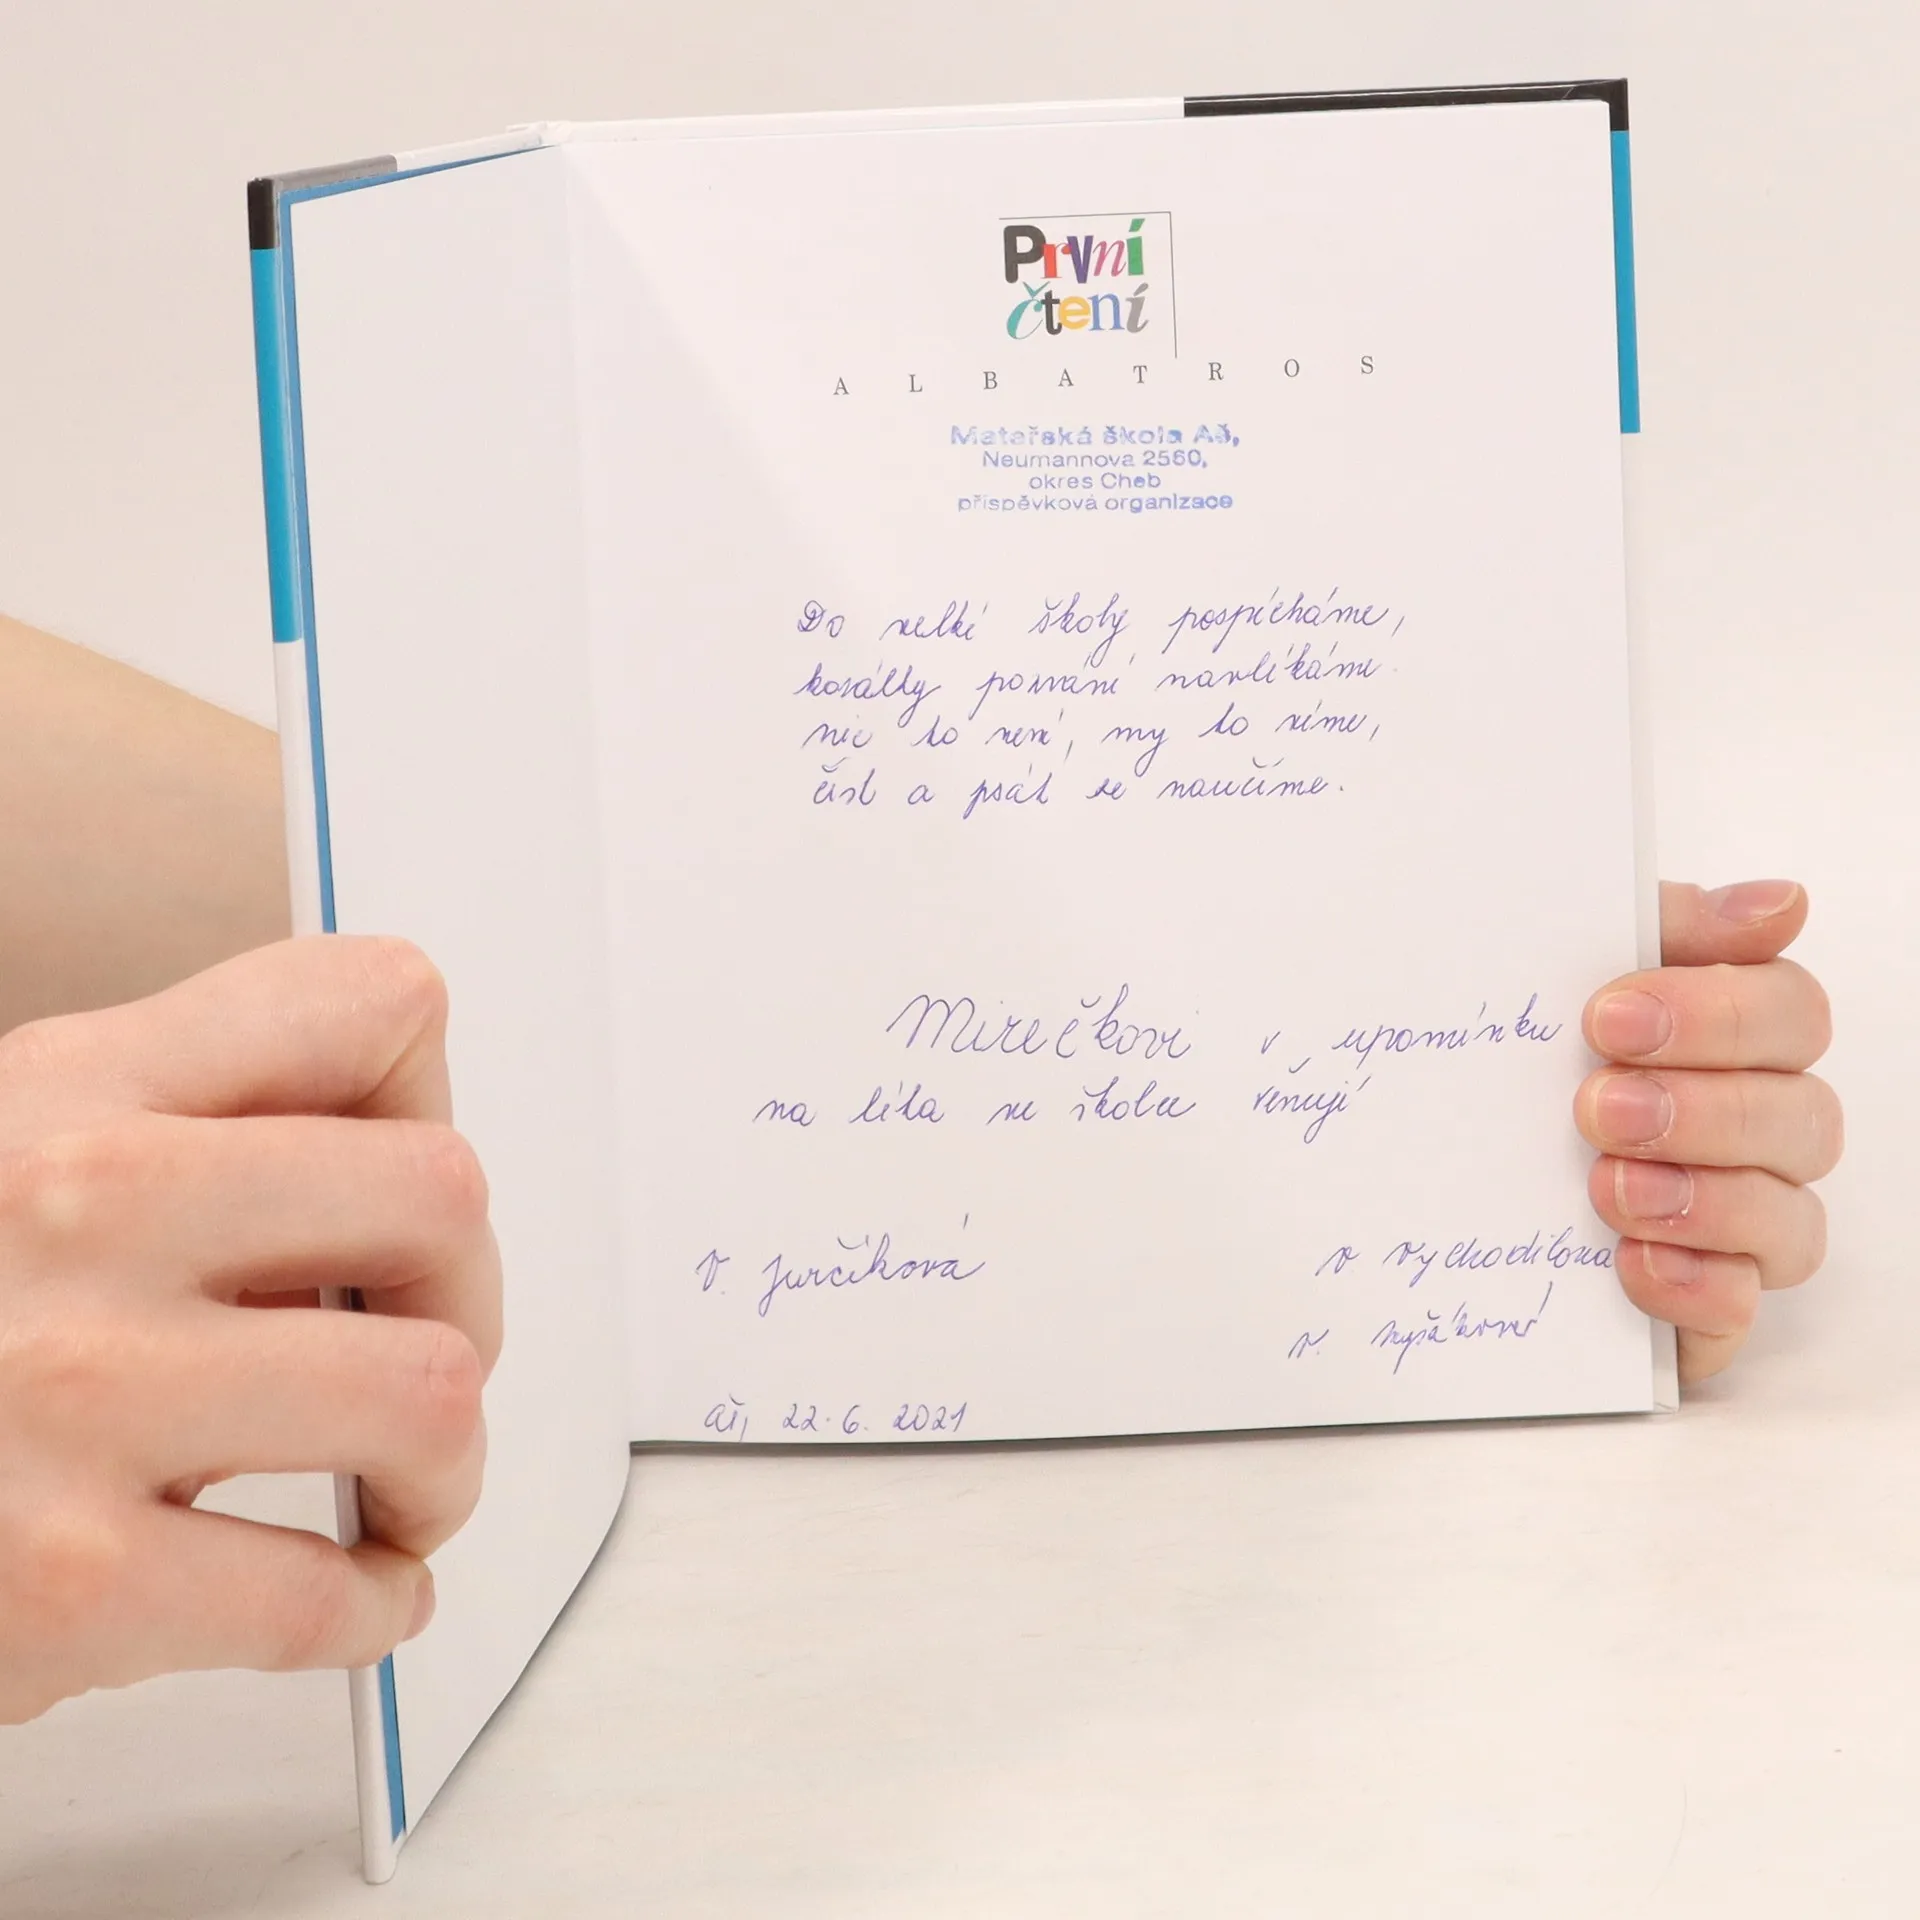 První
čtení
ALBATROS
Mateřská škola Aš,
Neumannova 2560,
okres Cheb
příspěvková organizace
Do velké školy pospícháme,
korálky poznání navlékáme
nic to není, my to víme,
číst a psát se naučíme.
Mirečkovi v upomínku
na léta ve školce věnují
V. Jurčíková
V Vychodilová
V.
Aš, 22. 6. 2021